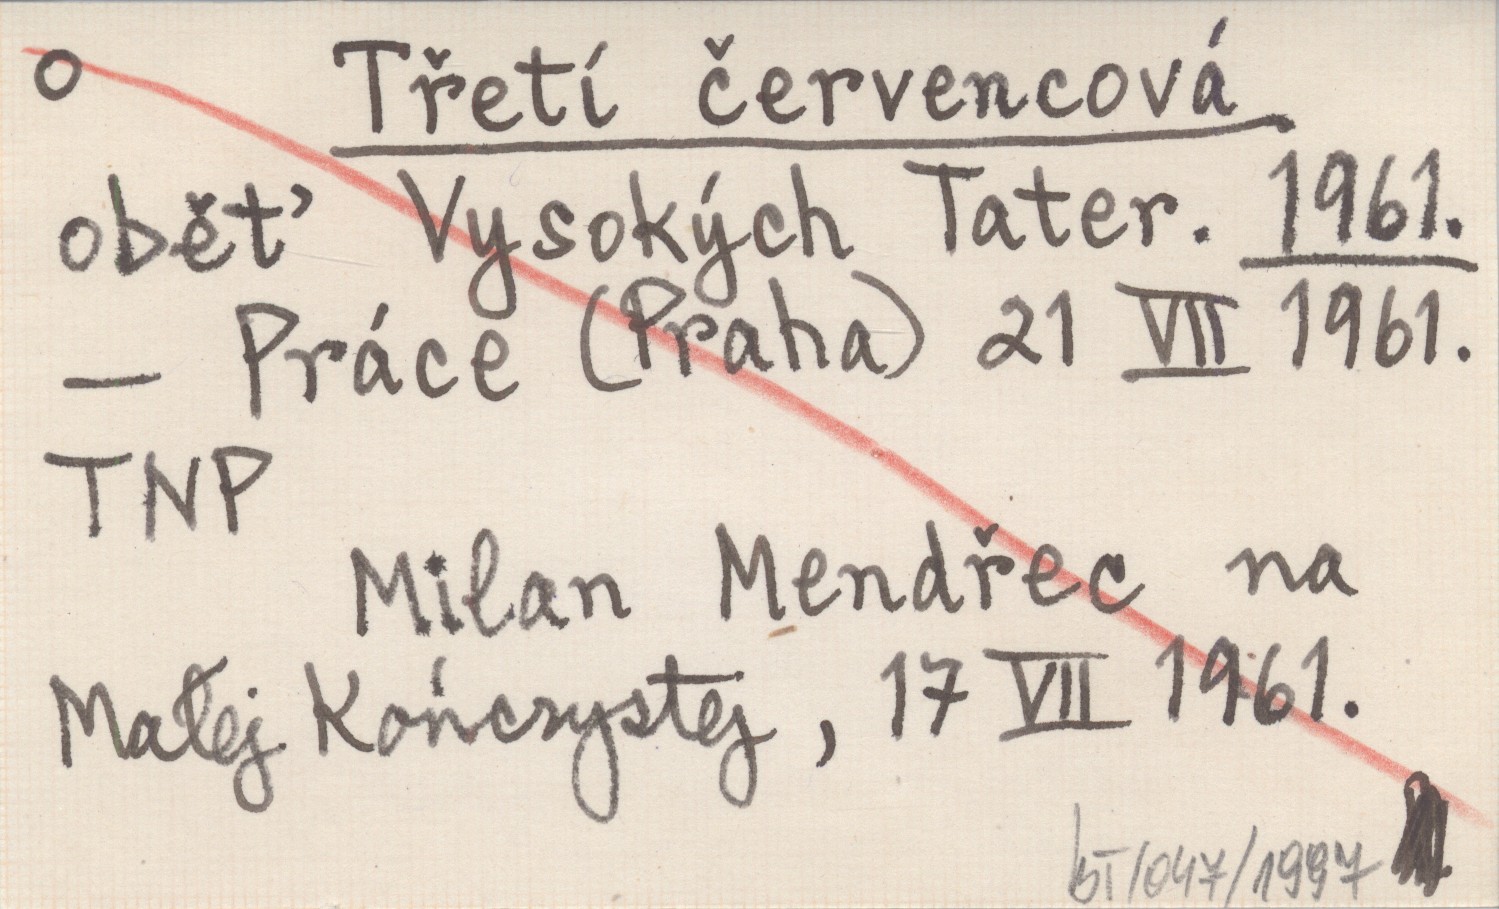 o Třetí červencová
oběť Vysokých Tater. 1961.
— Práce (Praha) 21 VII 1961.
TNP
Milan Mendřec na
Małej Kończystej, 17 VII 1961.
bT/047/1997